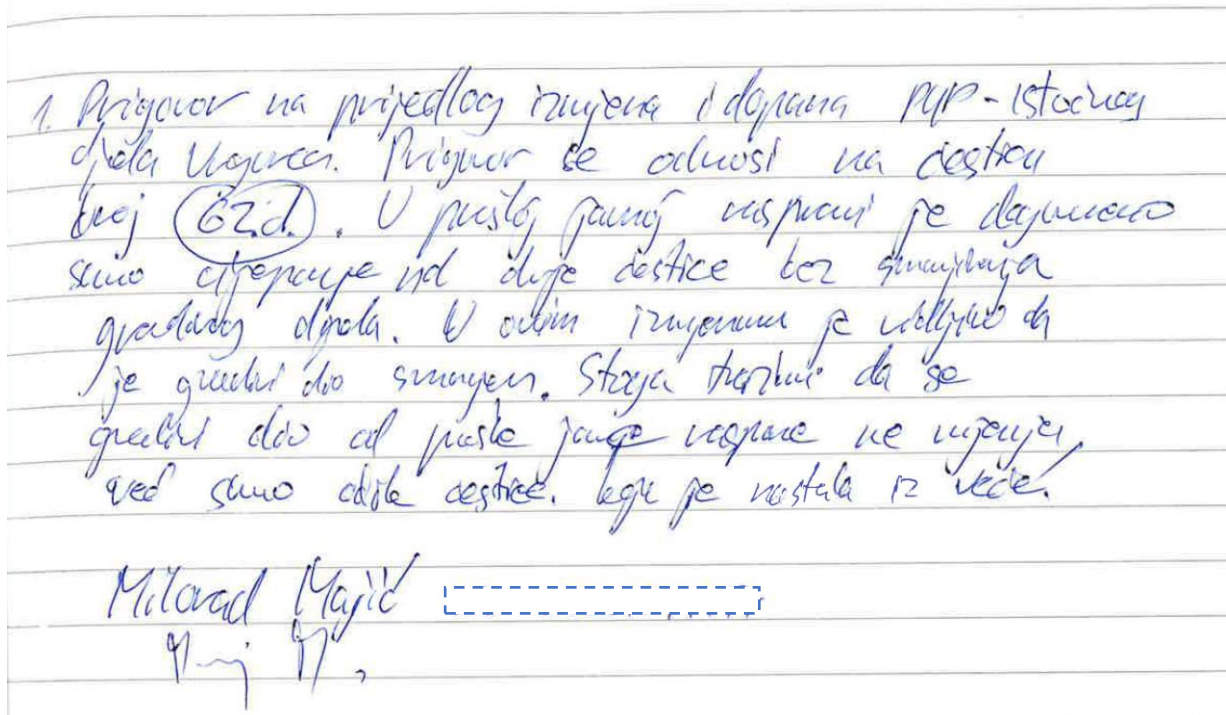 1. Prigovor na prijedlog izmjena i dopuna PUP-Istočnog
djela Prigovor se odnosi na česticu
broj 62.d. U prošloj javnoj raspravi je dogovoreno
samo cijepanje od dvije čestice bez smanjivanja
gradivog dijela. U ovim izmjenama je vidljivo da
je gradivi dio smanjen. Stoga tražimo da se
gradivi dio od prošle javne rasprave ne mjenja,
već samo čestice. koja je nastala iz veće.
Milorad Majić